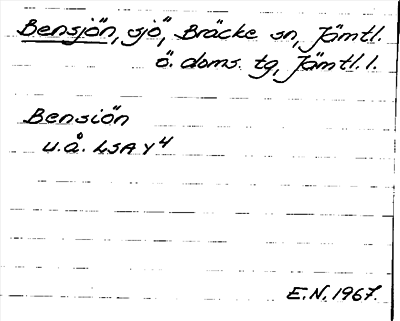 Bensjön, sjö, Bräcke sn, Jämtl.
ö. doms. tg, Jämtl. l.
Bensiön
u.å. LSA Y4
E.N. 1967.